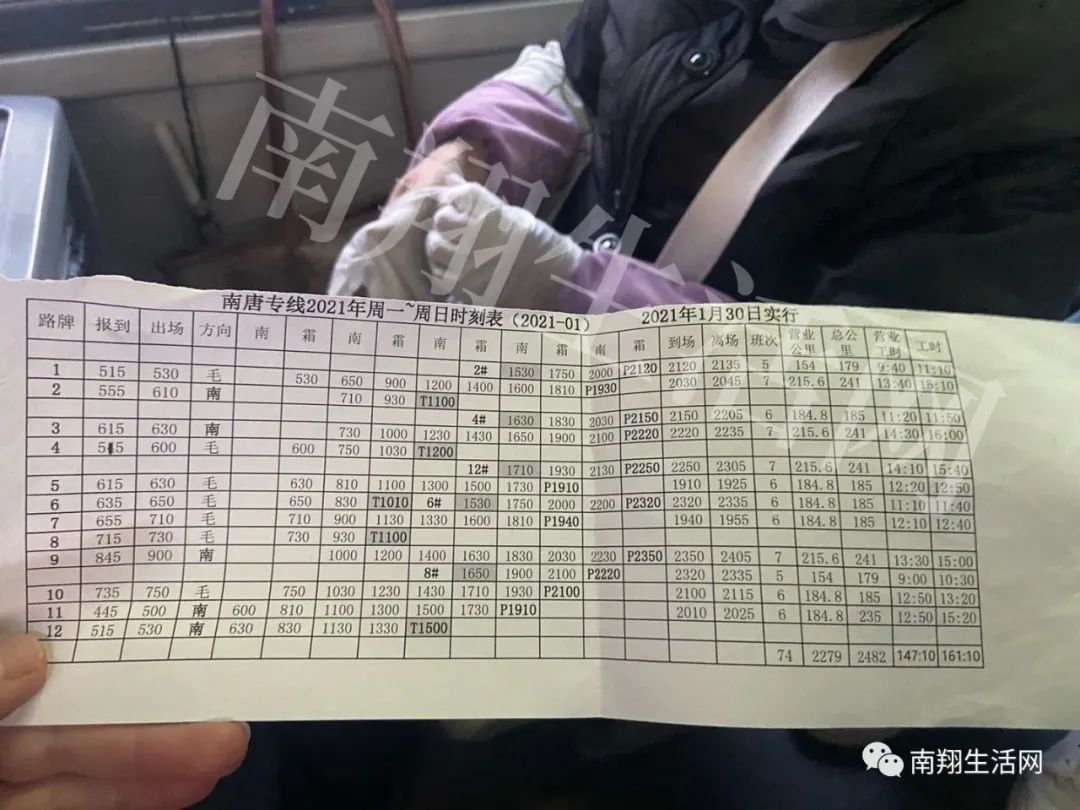 南唐专线2021年周一~周日时刻表（2021-01） 2021年1月30日实行
路牌 报到 出场 方向 南 霜 南 霜 南 霜 南 霜 南 霜 到场 离场 班次 营业公里 总公里 营业工时 工时
1 515 530 毛 530 650 900 1200 1400 1600 1810 P1930 2030 2045 7 215.6 241 13:40 15:10
2# 1530 1750 2000 P2120 2120 2135 5 154 179 9:40 11:10
2 555 610 南 710 930 T1100
4# 1630 1830 2030 P2150 2150 2205 6 184.8 185 11:20 11:50
3 615 630 南 730 1000 1230 1430 1650 1900 2100 P2220 2220 2235 7 215.6 241 14:30 16:00
4 600 毛 600 750 1030 T1200
12# 1710 1930 2130 P2250 2250 2305 7 215.6 241 14:10 15:40
5 615 630 毛 630 810 1100 1300 1500 1730 P1910 1910 1925 6 184.8 185 12:20 12:50
6 635 650 毛 650 830 T1010 6# 1530 1750 2000 2200 P2320 2320 2335 6 184.8 185 11:10 11:40
7 655 710 毛 710 900 1130 1330 1600 1810 P1940 1940 1955 6 184.8 185 12:10 12:40
8 715 730 毛 730 930 T1100
9 845 900 南 1000 1200 1400 1630 1830 2030 2230 P2350 2350 2405 7 215.6 241 13:30 15:00
8# 1650 1900 2100 P2220 2320 2335 5 154 179 9:00 10:30
10 735 750 毛 750 1030 1230 1430 1710 1930 P2100 2100 2115 6 184.8 185 12:50 13:20
11 445 500 南 600 810 1100 1300 1500 1730 P1910 2010 2025 6 184.8 235 12:50 15:20
12 515 530 南 630 830 1130 1330 T1500
74 2279 2482 147:10 161:10
南翔生活网
南翔生活网